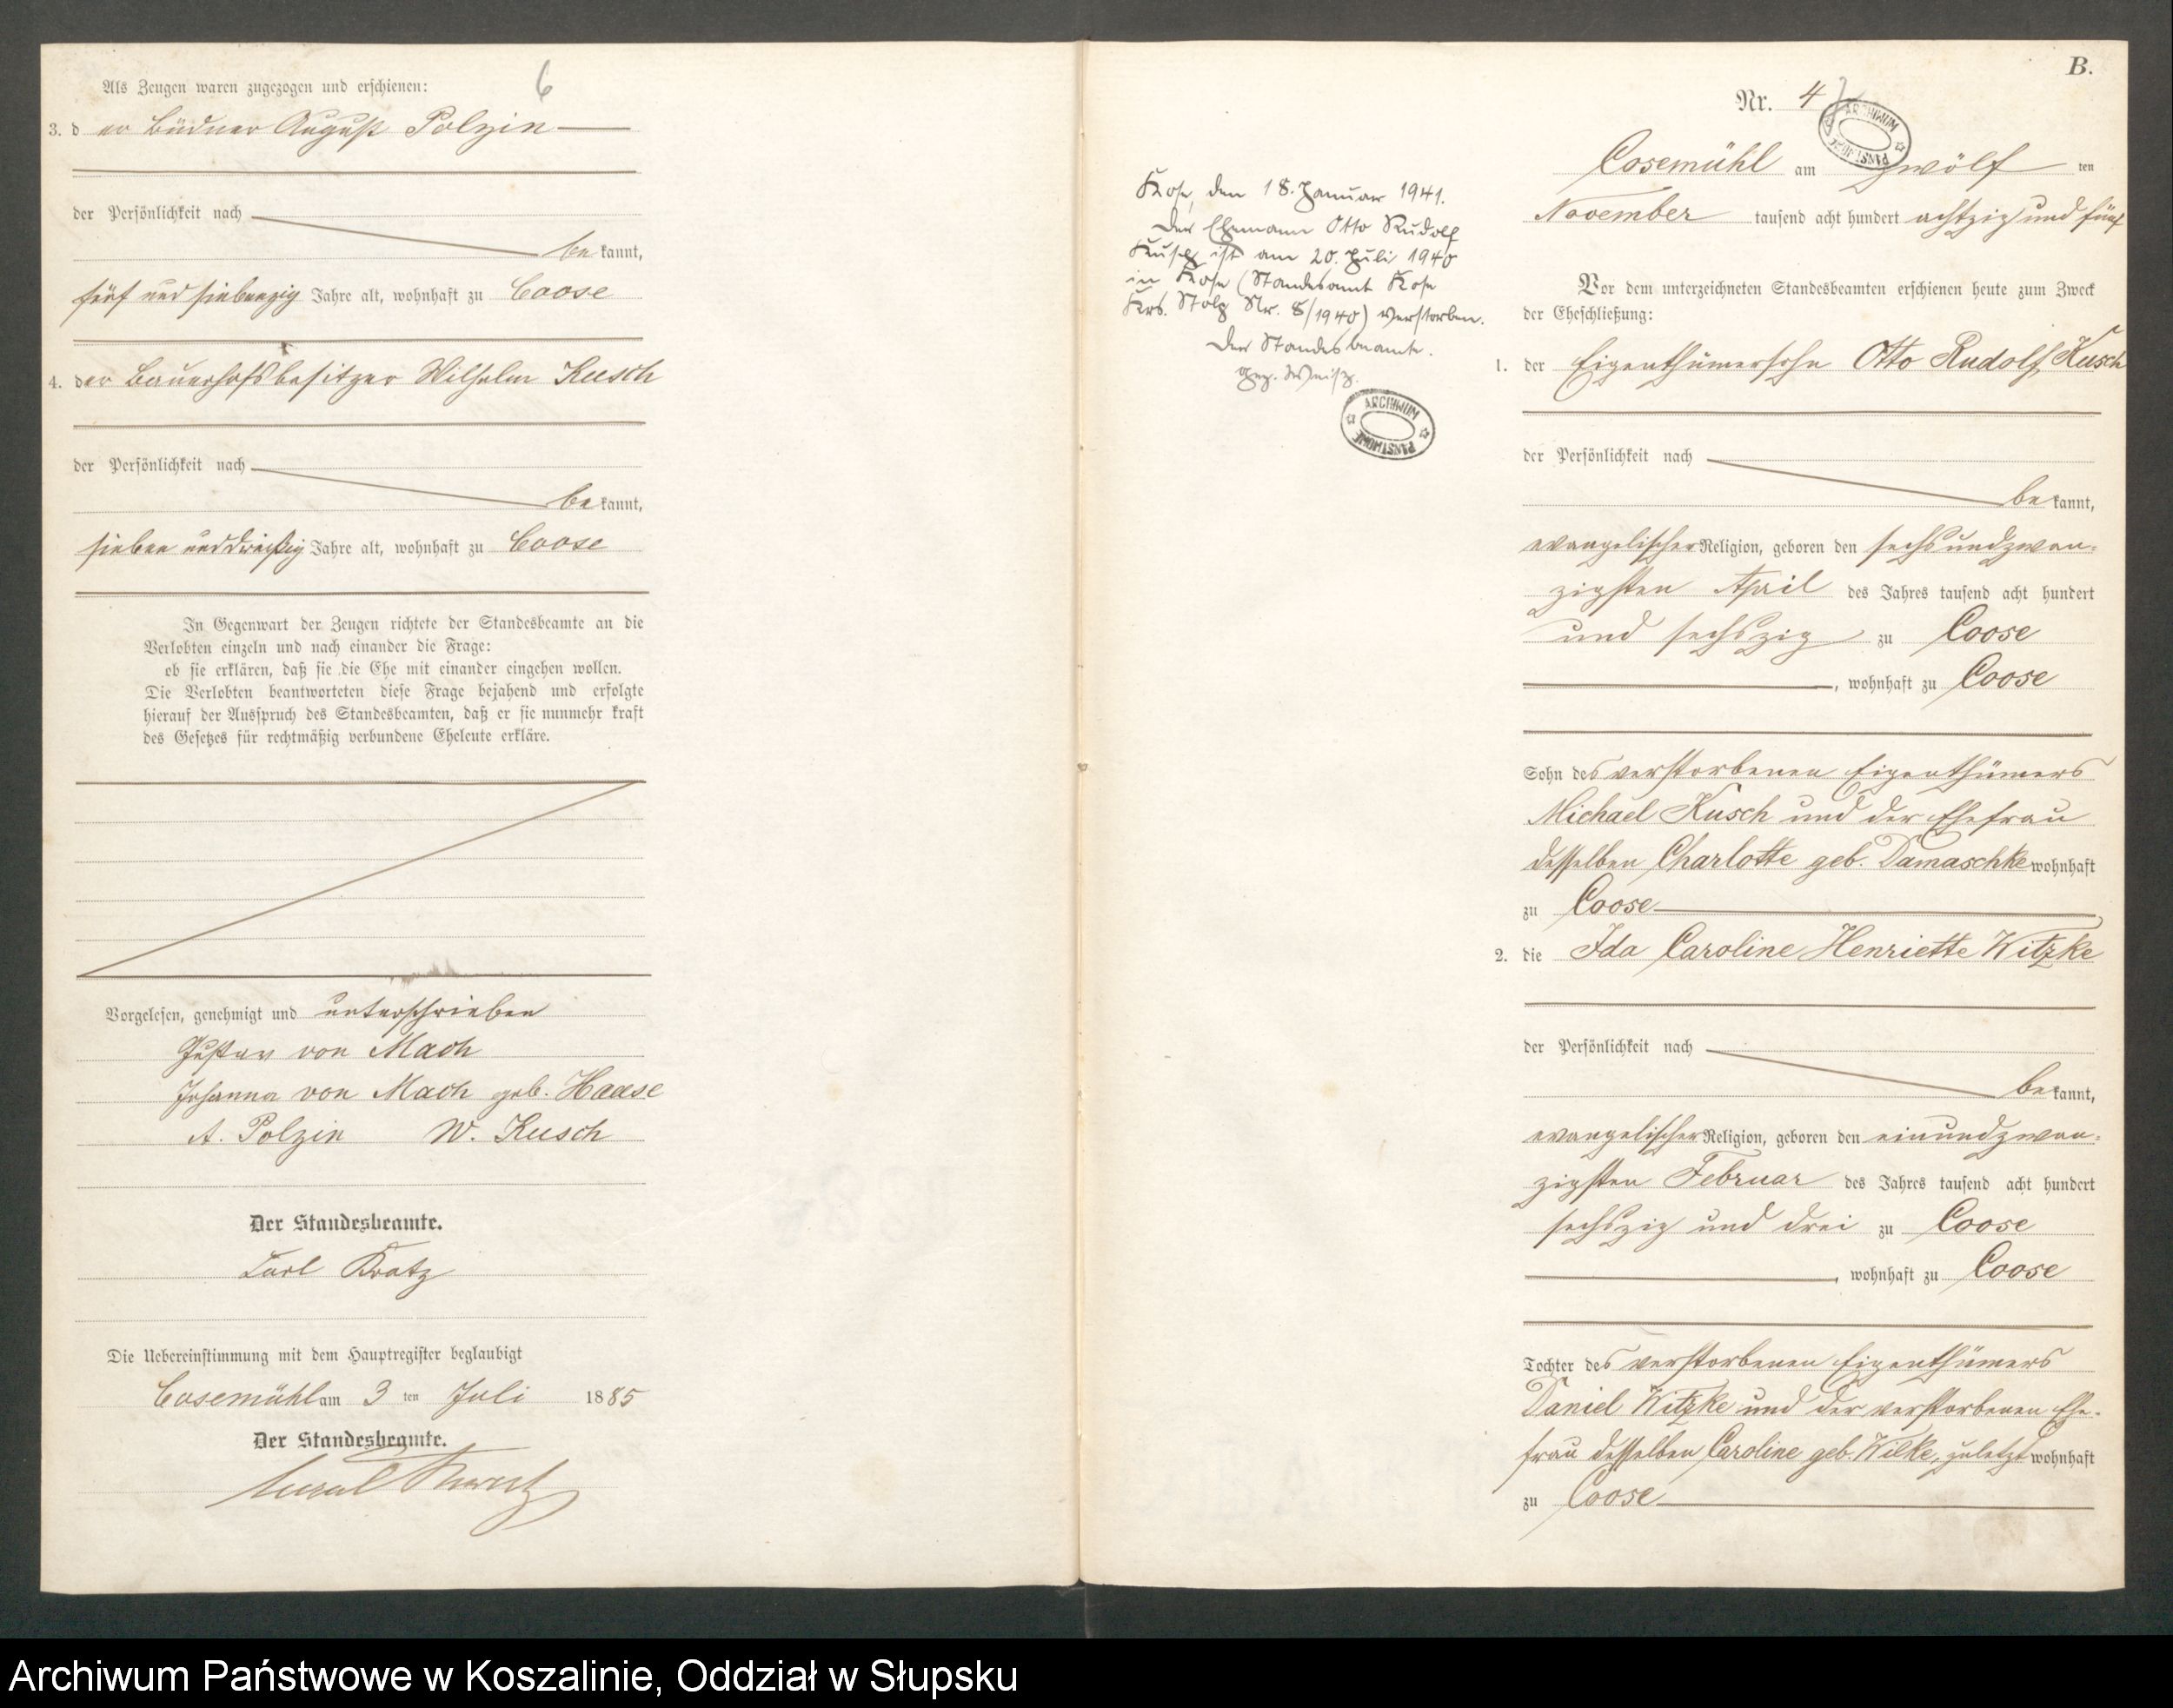 6
Als Zeugen waren zugezogen und erschienen:
3. d er Büdner August Polzin
der Persönlichkeit nach
be kannt,
fünf und siebenzig Jahre alt, wohnhaft zu Coose
4. der Bauerhofsbesitzer Wilhelm Kusch
der Persönlichkeit nach
be kannt,
sieben und dreißig Jahre alt, wohnhaft zu Coose
In Gegenwart der Zeugen richtete der Standesbeamte an die
Verlobten einzeln und nach einander die Frage:
ob sie erklären, daß sie die Ehe mit einander eingehen wollen.
Die Verlobten beantworteten diese Frage bejahend und erfolgte
hierauf der Ausspruch des Standesbeamten, daß er sie nunmehr kraft
des Gesetzes für rechtmäßig verbundene Eheleute erkläre.
Vorgelesen, genehmigt und unterschrieben
Gustav von Mach
Johanna von Mach geb. Haase
A. Polzin W. Kusch
Der Standesbeamte.
Carl Kratz
Die Uebereinstimmung mit dem Hauptregister beglaubigt
Cosemühl am 3 ten Juli 1885
Der Standesbeamte.
Kose, den 18. Januar 1941.
Der Ehemann Otto Rudolf
Kusch ist am 20. Juli 1940
in Kose (Standesamt Kose
Krs. Stolp Nr. 8/1940) verstorben.
Der Standesbeamte.
gez.
ARCHIWUM PAŃSTWOWE
B.
Nr. 4
ARCHIWUM PAŃSTWOWE
Cosemühl am zwölf ten
November tausend acht hundert achtzig und fünf
Vor dem unterzeichneten Standesbeamten erschienen heute zum Zweck
der Eheschließung:
1. der Eigenthümersohn Otto Rudolf Kusch
der Persönlichkeit nach
be kannt,
evangelischer Religion, geboren den sechsundzwan-
zigsten April des Jahres tausend acht hundert
und sechszig zu Coose
, wohnhaft zu Coose
Sohn des verstorbenen Eigenthümers
Michael Kusch und der Ehefrau
desselben Charlotte geb. Damaschke wohnhaft
zu Coose
2. die Ida Caroline Henriette Witzke
der Persönlichkeit nach
be kannt,
evangelischer Religion, geboren den einundzwan-
zigsten Februar des Jahres tausend acht hundert
sechszig und drei zu Coose
, wohnhaft zu Coose
Tochter des verstorbenen Eigenthümers
Daniel Witzke und der verstorbenen Ehe-
frau desselben Caroline geb. Wilke, zuletzt wohnhaft
zu Coose
Archiwum Państwowe w Koszalinie, Oddział w Słupsku